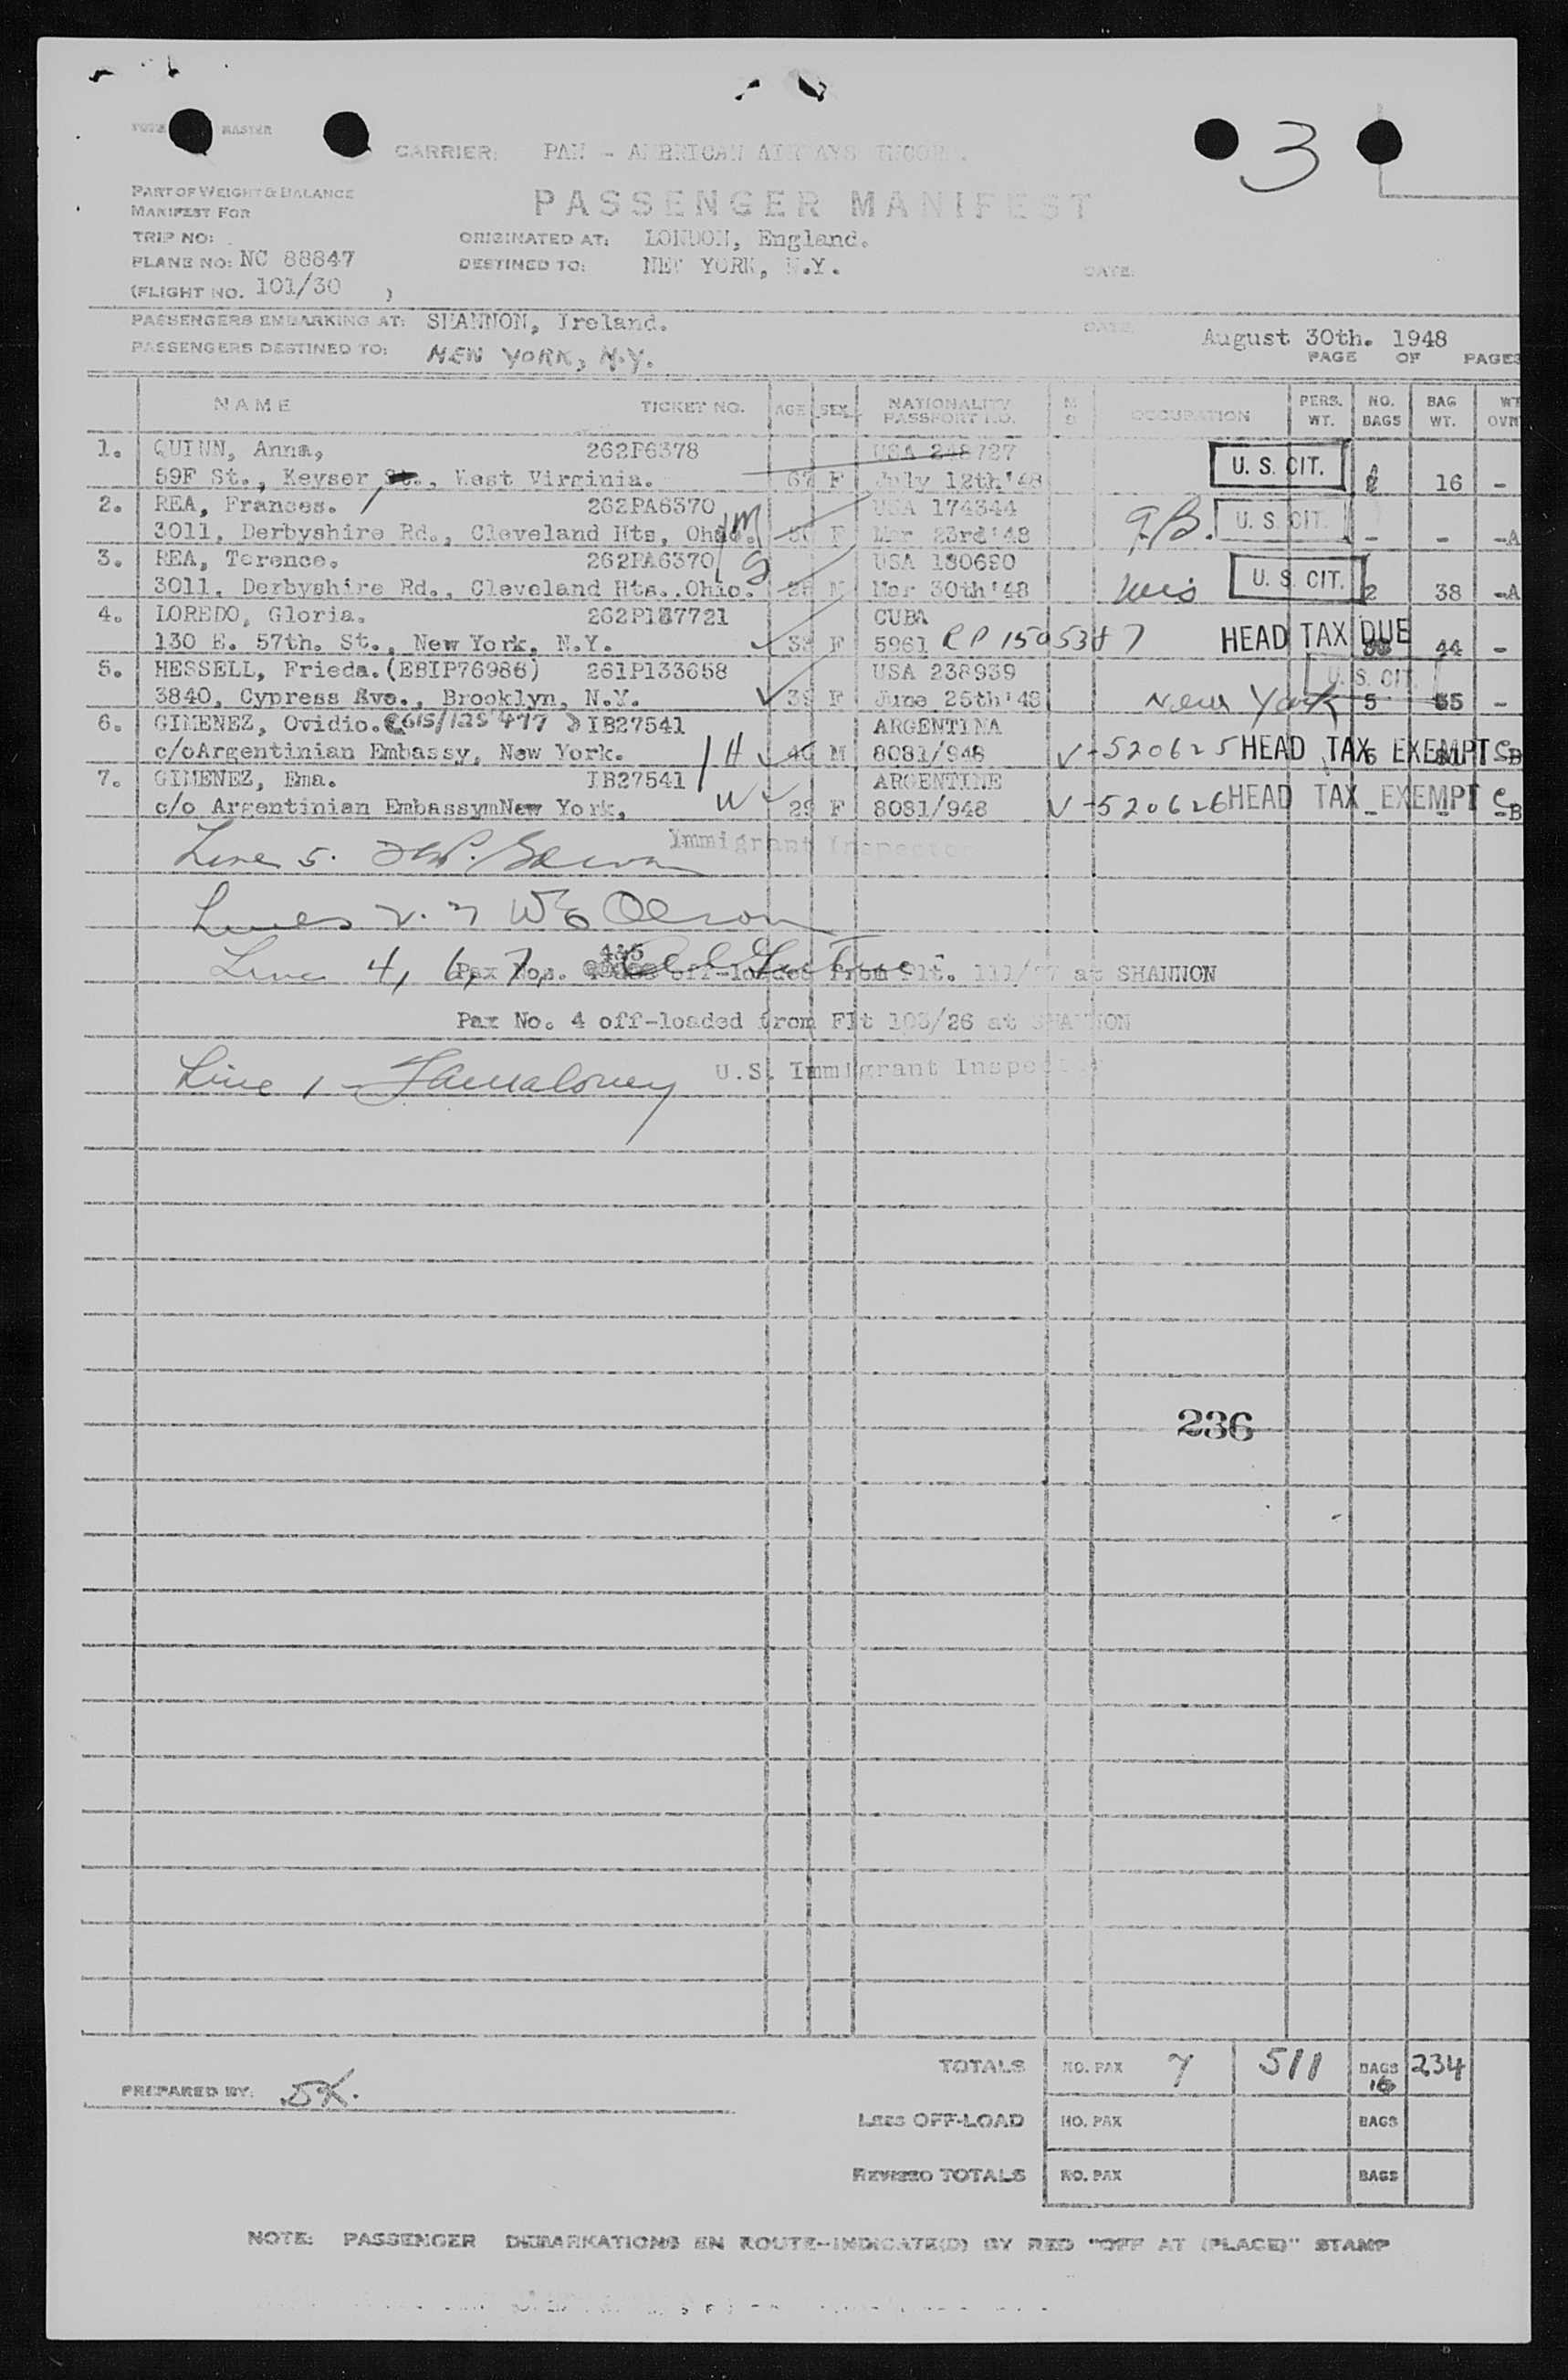 3
MASTER
CARRIER: PAN - AMERICAN AIRWAYS INCORP.
PART OF WEIGHT & BALANCE
MANIFEST FOR
PASSENGER MANIFEST
TRIP NO:
ORIGINATED AT: LONDON, England.
PLANE NO: NC 88847
DESTINED TO: NEW YORK, N.Y.
DATE:
(FLIGHT NO. 101/30 )
PASSENGERS EMBARKING AT: SHANNON, Ireland.
DATE: August 30th. 1948
PASSENGERS DESTINED TO: NEW YORK, N.Y.
PAGE OF PAGES
NAME TICKET NO. AGE SEX NATIONALITY PASSPORT NO. M S OCCUPATION PERS. WT. NO. BAGS BAG WT. WT OVN
1. QUINN, Anna, 262P6378 USA 248727 U. S. CIT.
59F St., Keyser, West Virginia. 67 F July 12th'48 2 16 -
2. REA, Frances. 262PA6370 USA 174344 U. S. CIT.
3011, Derbyshire Rd., Cleveland Hts, Ohio. M F Mar 23rd'48 - - -A
3. REA, Terence. 262PA6370 S USA 180690 U. S. CIT.
3011, Derbyshire Rd., Cleveland Hts..Ohio. M Mar 30th'48 2 38 -A
4. LOREDO, Gloria. 262P137721 CUBA
130 E. 57th. St., New York, N.Y. F 5961 RP 1505347 HEAD TAX DUE 44 -
5. HESSELL, Frieda.(EBIP76986) 261P133658 USA 238939 U. S. CIT.
3840, Cypress Ave., Brooklyn, N.Y. 39 F June 25th'48 New York 5 55 -
6. GIMENEZ, Ovidio. IB27541 ARGENTINA
c/oArgentinian Embassy, New York. H 40 M 8081/948 V-520625 HEAD TAX EXEMPT
7. GIMENEZ, Ema. IB27541 ARGENTINE
c/o Argentinian EmbassymNew York, W 29 F 8081/948 V-520626 HEAD TAX EXEMPT - - -B
Line 5. Immigrant Inspector
Lines 2. 3 W E Olson
Line 4, 6, 7,
Pax Nos. off-loaded from Flt. 111/27 at SHANNON
Pax No. 4 off-loaded from Flt 103/26 at SHANNON
Line 1 - U.S. Immigrant Inspector
236
TOTALS NO. PAX 7 511 BAGS 16 234
PREPARED BY: SK.
LESS OFF-LOAD NO. PAX BAGS
REVISED TOTALS NO. PAX BAGS
NOTE: PASSENGER DEBARKATIONS EN ROUTE-INDICATE(D) BY RED "OFF AT (PLACE)" STAMP